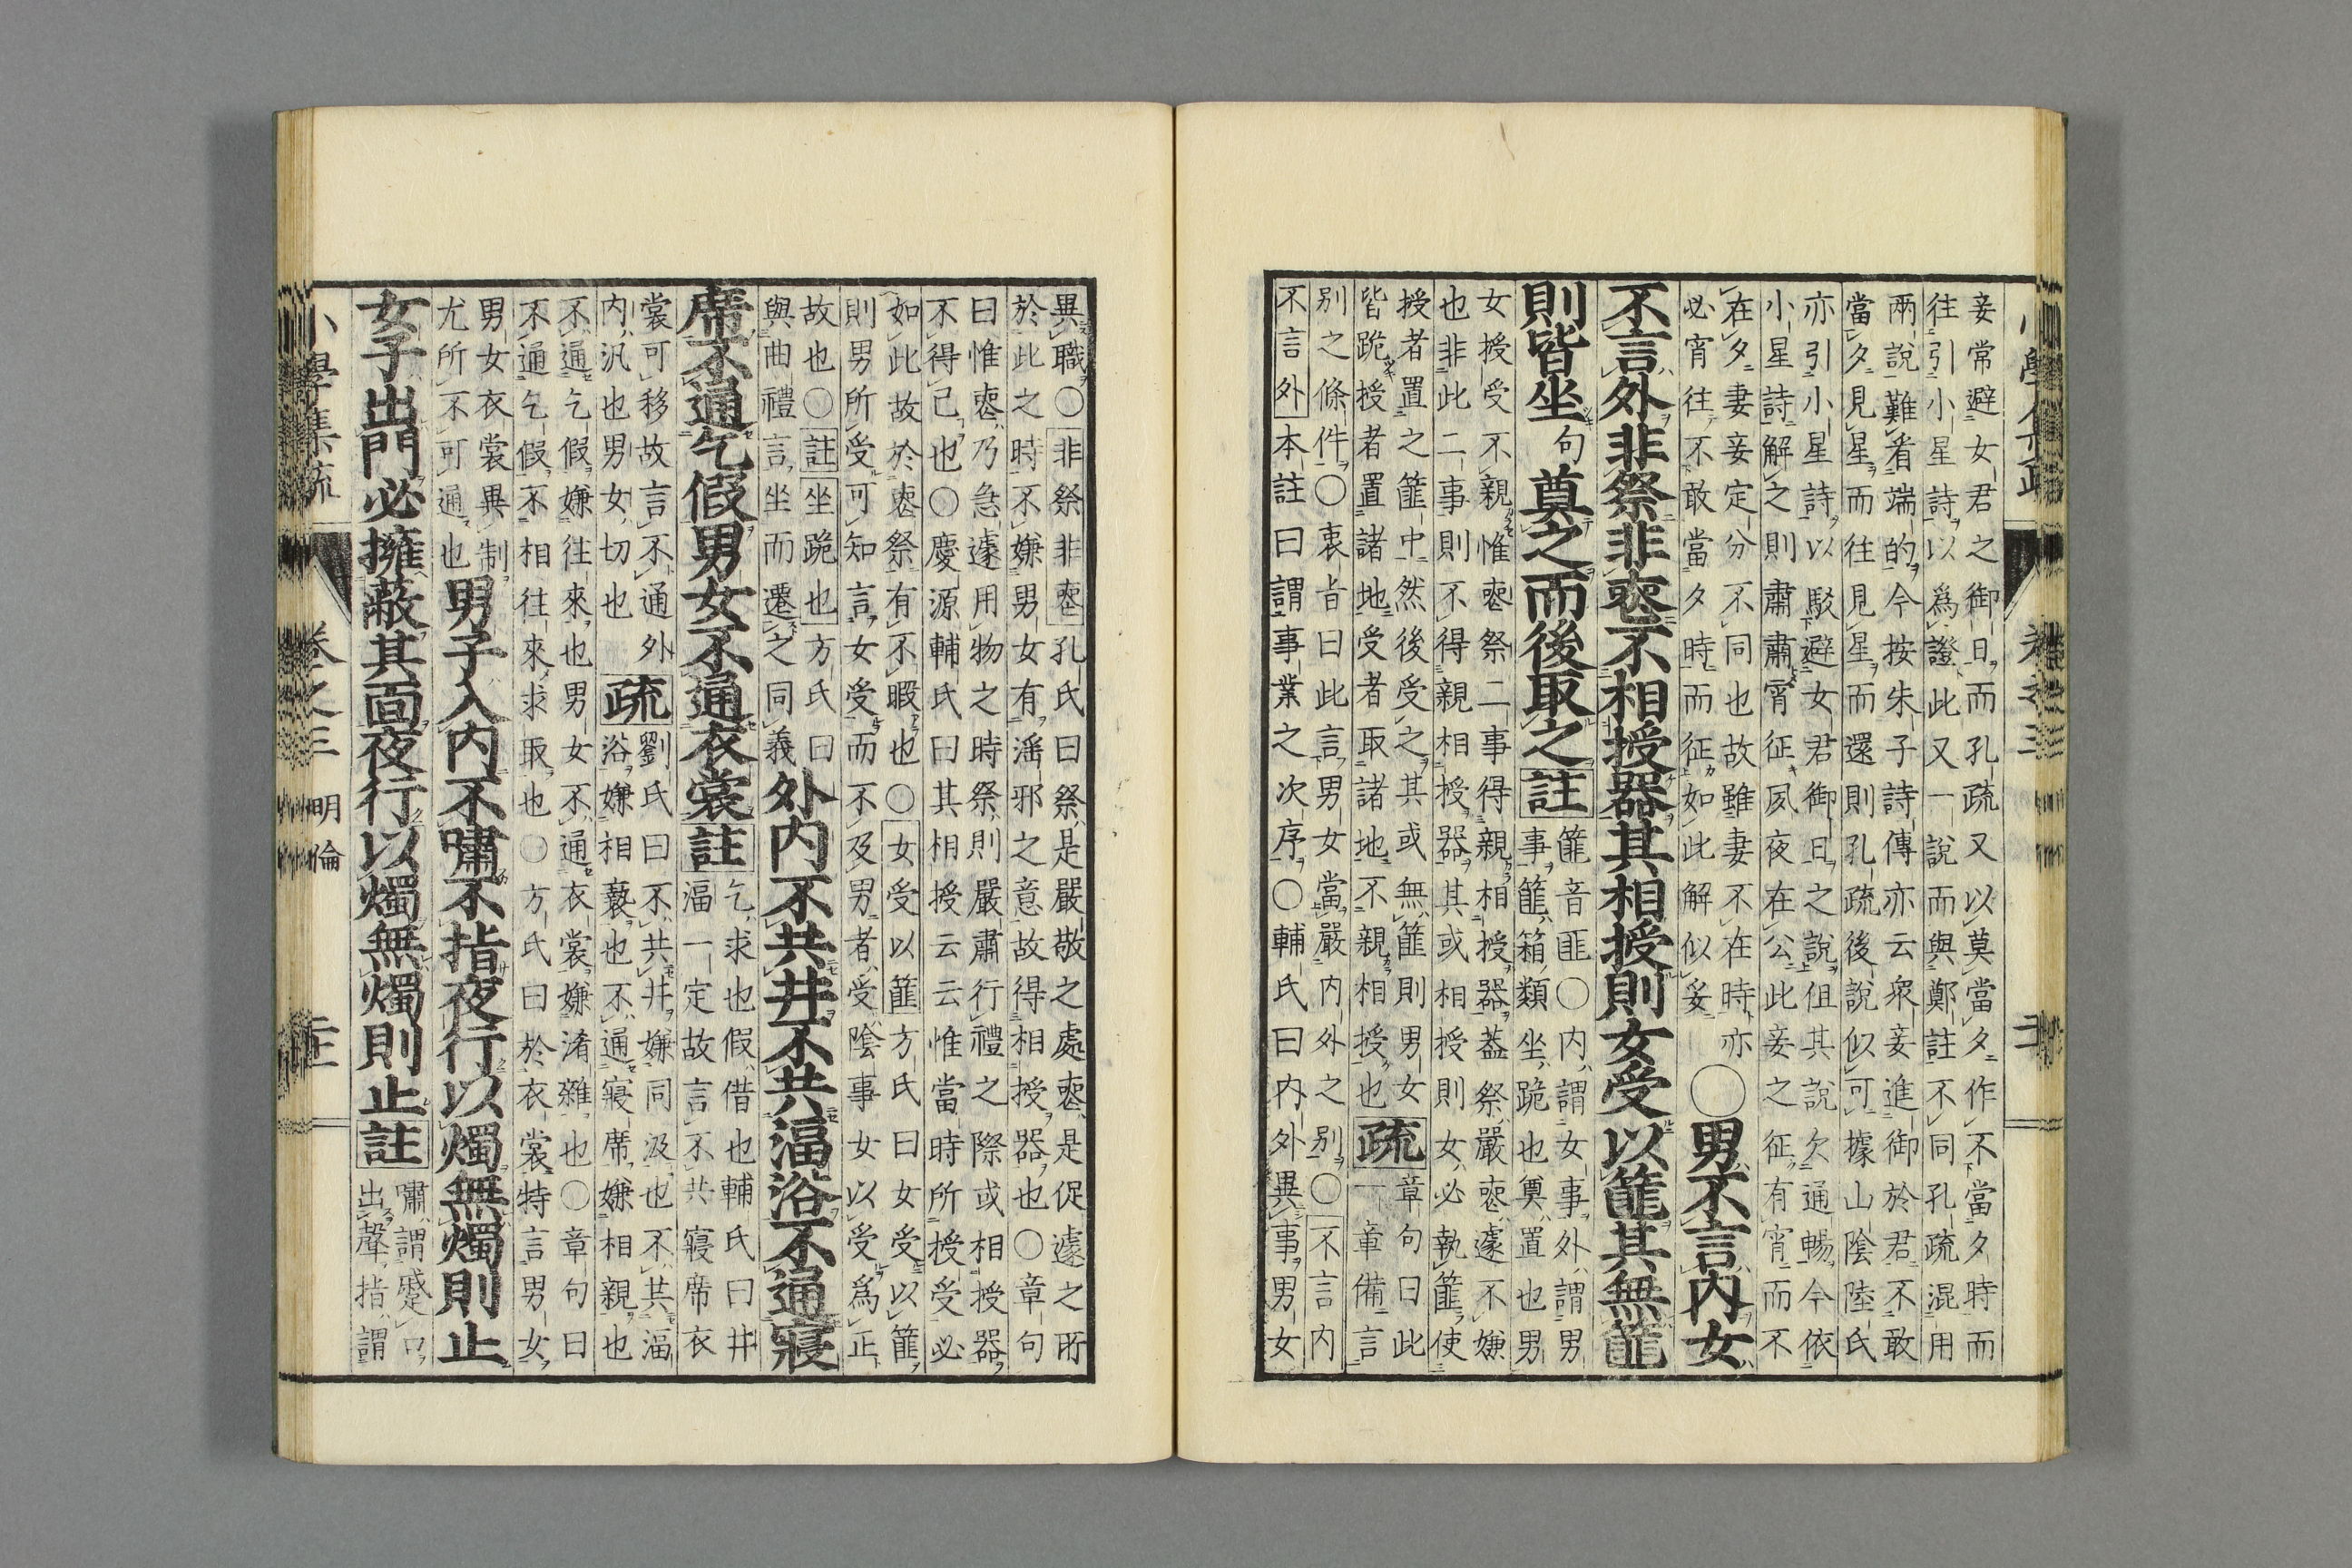 妾常避女君之御日而孔疏又以莫當夕作不當夕時而
往引小星詩以爲證此又一說而與鄭註不同孔疏混用
兩說難看端的今按朱子詩傳亦云衆妾進御於君不敢
當夕見星而往見星而還則孔疏後說似可據山陰陸氏
亦引小星詩以駁避女君御日之說但其說欠通暢今依
小星詩解之則肅肅宵征夙夜在公此妾之征有宵而不
在夕妻妾定分不同也故雖妻不在時亦
必宵往不敢當夕時而征如此解似妥
○男不言內女
不言外非祭非喪不相授器其相授則女受以篚其無篚
則皆坐句奠之而後取之註
篚音匪○內謂女事外謂男
事篚箱類坐跪也奠置也男
女授受不親惟喪祭二事得親相授器蓋祭嚴喪遽不嫌
也非此二事則不得親相授器其或相授則女必執篚使
授者置之篚中然後受之其或無篚則男女
皆跪授者置諸地受者取諸地不親相授也
疏
章句曰此
一章備言
別之條件○衷旨曰此言男女當嚴內外之別○不言內
不言外本註曰謂事業之次序○輔氏曰內外異事男女
異職○非祭非喪孔氏曰祭是嚴敬之處喪是促遽之所
於此之時不嫌男女有滛邪之意故得相授器也○章句
曰惟喪乃急遽用物之時祭則嚴肅行禮之際或相授器
不得已也○慶源輔氏曰其相授云云惟當時所授受必
如此故於喪祭有不暇也○女受以篚方氏曰女受以篚
則男所受可知言女受而不及男者受陰事女以受爲正
故也○註坐跪也方氏曰
與曲禮言坐而遷之同義
外內不共井不共湢浴不通寢
席不通乞假男女不通衣裳註
乞求也假借也輔氏曰井
湢一定故言不共寢席衣
裳可移故言不通外
內汎也男女切也
疏
劉氏曰不共井嫌同汲也不共湢
浴嫌相褻也不通寢席嫌相親也
不通乞假嫌往來也男女不通衣裳嫌淆雜也○章句曰
不通乞假不相往來求取也○方氏曰於衣裳特言男女
男女衣裳異制
尤所不可通也
男子入內不嘯不指夜行以燭無燭則止
女子出門必擁蔽其面夜行以燭無燭則止註
嘯謂蹙口
出聲指謂
小學集疏
卷之三
明倫